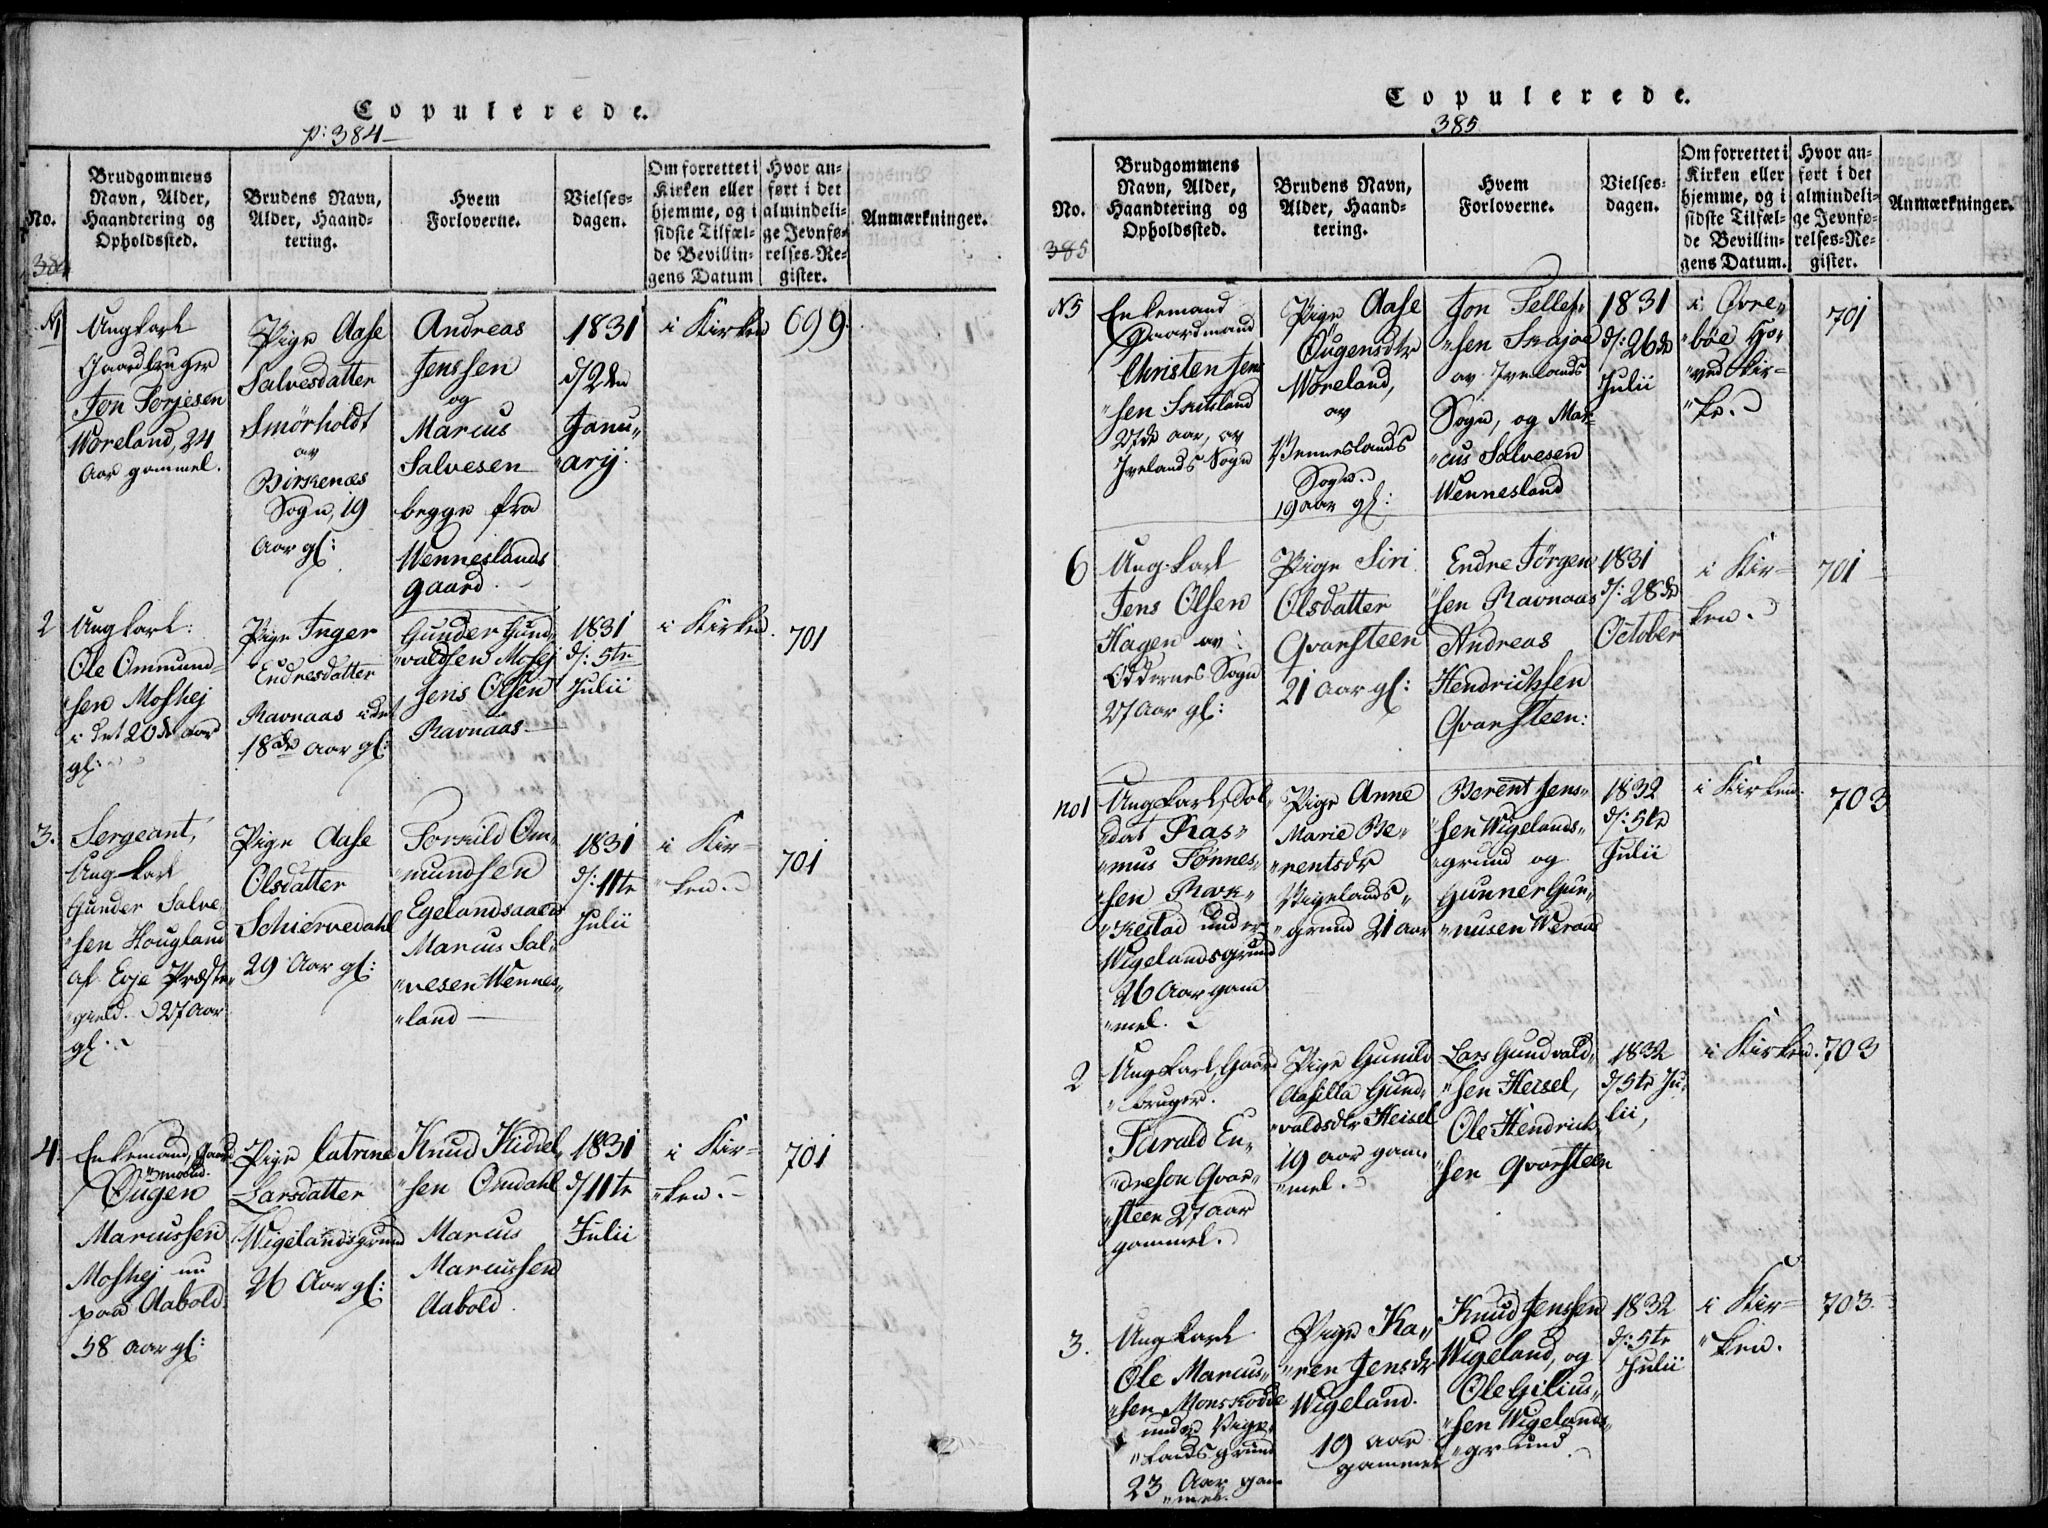 Copulerede.
p: 384
No.
Brudgommens Navn, Alder, Haandtering og Opholdssted.
Brudens Navn, Alder, Haand-tering.
Hvem Forloverne.
Vielses-dagen.
Om forrettet i Kirken eller hjemme, og i sidste Tilfæl-de Bevillin-gens Datum
Hvor an-ført i det almindeli-ge Jevnfø-relses-Re-gister.
Anmærkninger.
384
N1
Ungkarl
Gaardbruger
Jon Torjesen
Woreland, 24
Aar gammel.
Pige Aase
Salvesdatter
Smörholdt
av
Birkenæs
Sogn, 19
Aar gl:
Andreas
Jenssen
og
Marcus
Salvesen
begge fra
Wenneslands
gaard.
1831
d/2den
Janu"
"arij.
i Kirken
699.
2
Ungkarl:
Ole Ommund"
"sen Moshej
i det 20de aar
gl:
Pige Inger
Endresdatter
Ravnaas i det
18de Aar gl:
Gunder Gund"
"valdsen Moshej
Jens Olsen
Ravnaas
1831
d: 5te
Julii
i Kirken.
701
3.
Sergeant,
Ungkarl
Gunder Salve"
"sen Hougland
af Evje Præste"
"gield. 27 Aar
gl.
Pige Aase
Olsdatter
Schiervedahl
29 Aar gl:
Torkild Om"
"mundsen
Egelandsaaen
Marcus Sal"
"vesen Wennes"
"land
1831
d: 11te
Julii
i Kir=
"ken.
701
4.
Enkemand, Gaard
"mand.
Øugen
Marcussen
Moshej nu
paa Aabold.
58 aar gl:
Pige Catrine
Larsdatter
Wigelandsgrund
26 Aar gl:
Knud Kiddel"
"sen Omdahl
Marcus
Marcussen
Aabold.
1831
d/11te
Julii
i Kir=
"ken.
701
Copulerede.
385
No.
Brudgommens Navn, Alder, Haandtering og Opholdssted.
Brudens Navn, Alder, Haand-tering.
Hvem Forloverne.
Vielses-dagen.
Om forrettet i Kirken eller hjemme, og i sidste Tilfæl-de Bevillin-gens Datum.
Hvor an-ført i det almindeli-ge Jevnfø-relses-Re-gister.
Anmærkninger.
385
N5
Enkemand
Gaardmand
Christen Jens
"sen
27de aar, av
Ivelands Sogn
Pige Aase
Øugensdtr
Woreland,
av
Venneslands
Sogn.
19 aar gl:
Jon Tellef"
"sen Skajaa
av Ivelands
Sogn, og Mar"
"cus Salvesen
Wennesland
1831
d: 26de
Julii
i Øvre"
"bøe Ho"
"ved Kir=
"ke.
701
6
Ung-karl
Jens Olsen
Hagen av
Oddernes Sogn
27 Aar gl:
Pige Siri
Olsdatter
Qvarsteen
21 Aar gl:
Endre Jörgen
"sen Ravnaas
Andreas
Hendrichsen
Qvarsteen:
1831
d: 28de
October
i Kir=
ken.
701
no1
Ungkarl, Sol"
"dat Ras"
"mus Tønnes"
"sen Birk"
"kestad under
Wigelandsgrund
26 Aar gam
"mel.
Pige Anne
Marie Be"
"rentsdr
Vigelands"
"grund 21 aar
Berent Jens"
"sen Wigelands"
"grund og
Gunner Gun"
"nusen Weraas
1832
d: 5te
Julii
i Kirken.
703
2
Ungkarl, Gaard
"bruger.
Tarald En"
"dreson Qvar"
"steen 27 aar
gammel.
Pige Gunild
Aasilla Gund"
"valdsdtr Heisel
19 aar gam"
"mel.
Lars Gundvald"
"sen Heisel,
Ole Hendrich
"sen Qvarsteen
1832
d/5te Ju"
lii,
i Kirken.
703
3.
Ungkarl
Ole Marcus"
"sen Monskodde
under Vige"
"landsgrund
23 Aar gam
"mel.
Pige Ka"
"ren Jensdr
Wigeland.
19 aar
gammel
Knud Jenssen
Wigeland, og
Ole Gilius"
"sen Wigelands"
"grund.
1832
d: 5te
Julii
i Kir=
"ken.
703.